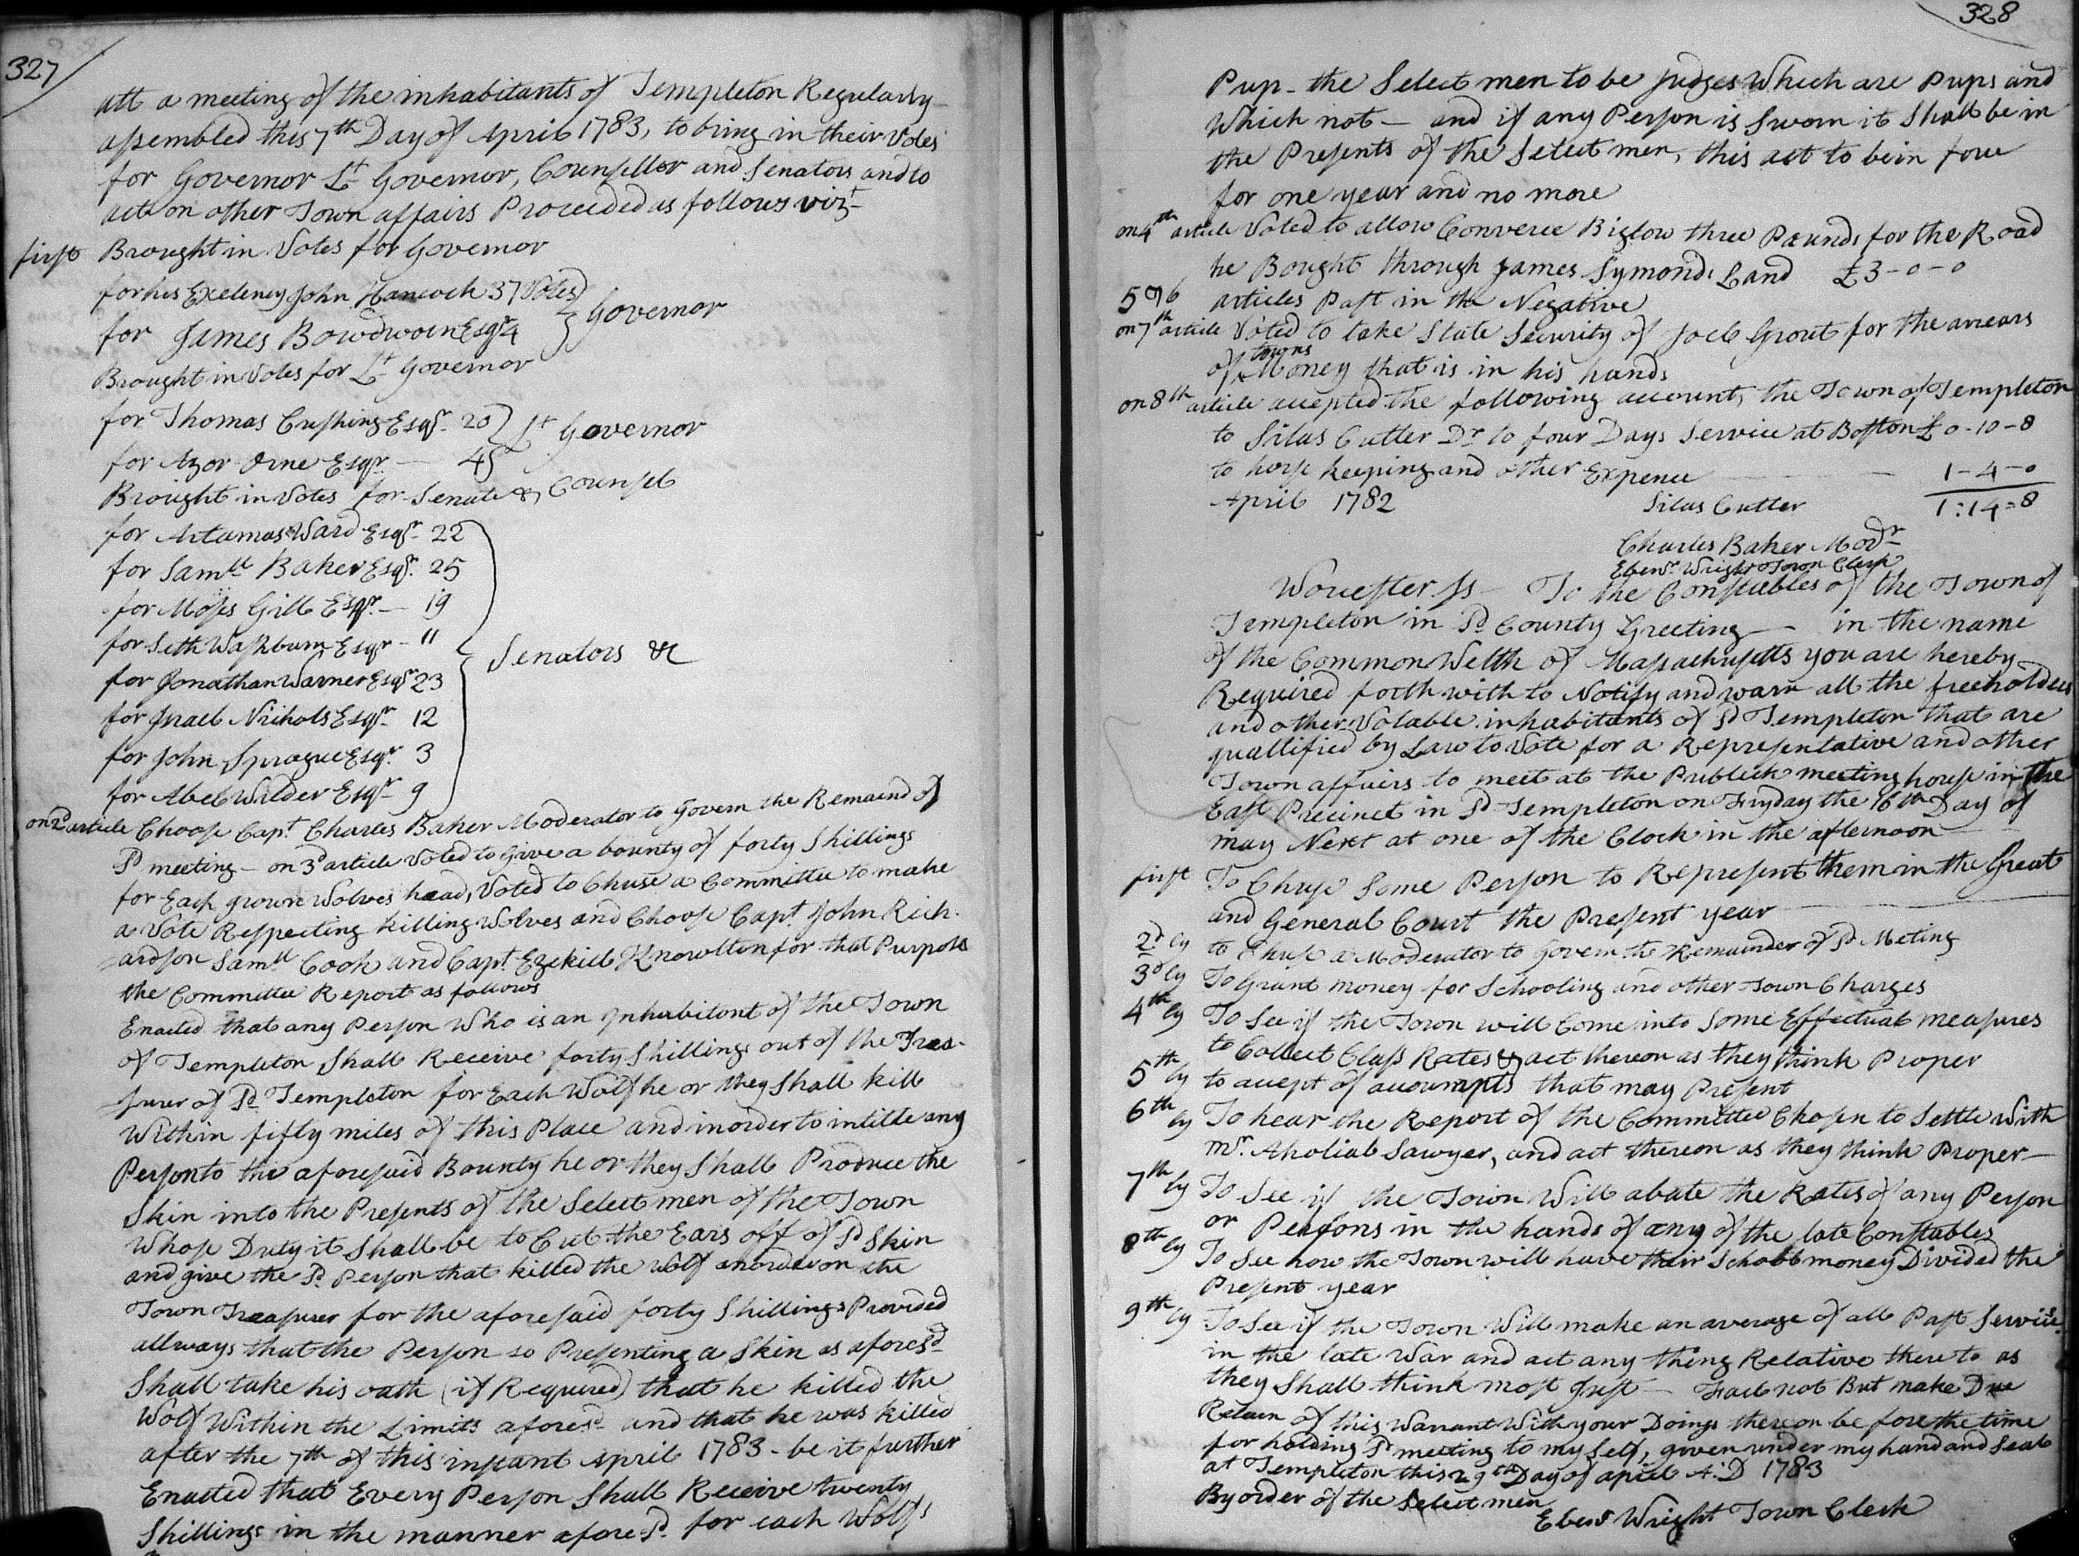 327
att a meeting of the inhabitants of Templeton Regularly
assembled this 7th Day of April 1783, to bring in their Votes
for Governor Lt Governor, Counsellor and Senators and to
act on other Town affairs Proceeded as follows vizt
first Brought in Votes for Governor
for his Exelency John Hancock 37 Votes
for James Bowdwoin Esqr 4 } Governor
Brought in Votes for Lt Governor
for Thomas Cushing Esqr 20 } Lt Governor
for Azor Orne Esqr — 4
Brought in Votes for Senate & Counsel
for Artamas Ward Esqr 22
for Samll Baker Esqr 25
for Moses Gill Esqr — 19
for Seth Washburn Esqr - 11
for Jonathan Warner Esqr 23 } Senators &c
for Israel Nichols Esqr 12
for John Sprague Esqr 3
for Abel Wilder Esqr 9
on 2d article Choose Capt Charles Baker Moderator to Govern the Remaind of
Sd meeting — on 3d article Voted to Give a bounty of forty Shillings
for Each grown Wolves head, Voted to Chuse a Committee to make
a Vote Respecting killing Wolves and Choose Capt John Rich-
ardson Samll Cook and Capt Ezekiel Knowlton for that Purpose
the Committee Report as follows
Enacted that any Person Who is an Inhabitant of the Town
of Templeton Shall Receive forty Shillings out of the Trea-
surer of Sd Templeton for Each Wolf he or they Shall kill
Within fifty miles of this Place and in order to intitle any
Person to the aforesaid Bounty he or they Shall Produce the
Skin into the Presents of the Select men of the Town
Whose Duty it Shall be to Cut the Ears off of Sd Skin
and give the Sd Person that killed the Wolf an order on the
Town Treasurer for the aforesaid forty Shillings Provided
allways that the Person so Presenting a Skin as aforesd
Shall take his oath (if Required) that he killed the
Wolf Within the Limits aforesd and that he was killed
after the 7th of this instant April 1783 - be it further
Enacted that Every Person Shall Receive twenty
Shillings in the manner aforesd for each Wolfs
328
Pup - the Select men to be Judges Which are Pups and
Which not — and if any Person is Sworn it Shall be in
the Presents of the Select men, this act to be in force
for one year and no more
on 4th article Voted to allow Converce Biglow three Pounds for the Road
he Bought through James Symonds Land £3-0-0
5 & 6 articles Past in the Negative
on 7th article Voted to take State Security of Joel Grout for the arrears
of towns Money that is in his hands
on 8th article accepted the following account, the Town of Templeton
to Silas Cutter Dr to four Days Service at Boston £ 0-10-8
to horse keeping and other Expence — 1-4-0
April 1782 Silas Cutter 1:14=8
Charles Baker Modr
Ebenr Wright Town Clerk
Worcester Ss — To the Constables of the Town of
Templeton in Sd County Greeting — in the name
of the Common Welth of Massachusetts you are hereby
Required forth with to Notify and warn all the freeholders
and other Votable inhabitants of Sd Templeton that are
quallified by Law to Vote for a Representative and other
Town affairs to meet at the Publick meeting house in the
East Precinct in Sd Templeton on Fryday the 16th Day of
may Next at one of the Clock in the afternoon
first To Chuse Some Person to Represent them in the Great
and General Court the Present year
2d ly to Chuse a Moderator to Govern the Remainder of Sd Meting
3d ly To Grant money for Schooling and other Town Charges
4th ly To See if the Town will Come into Some Effectual measures
to Collect Class Rates & act thereon as they think Proper
5th ly to accept of accoumpts that may Present
6th ly To hear the Report of the Committee Chosen to Settle With
mr. Aholiab Sawyer, and act thereon as they think Proper —
7th ly To See if the Town Will abate the Rates of any Person
or Persons in the hands of any of the late Constables
8th ly To See how the Town will have their Schooll money Divided the
Present year
9th ly To See if the Town Will make an average of all Past Service
in the late War and act any thing Relative there to as
they Shall think most Just — Fail not But make Due
Return of this Warrant With your Doings thereon before the time
for holding Sd meeting to my Self, given under my hand and Seal
at Templeton this 29th Day of April A:D 1783
By order of the Select men
Ebenr Wright Town Clerk